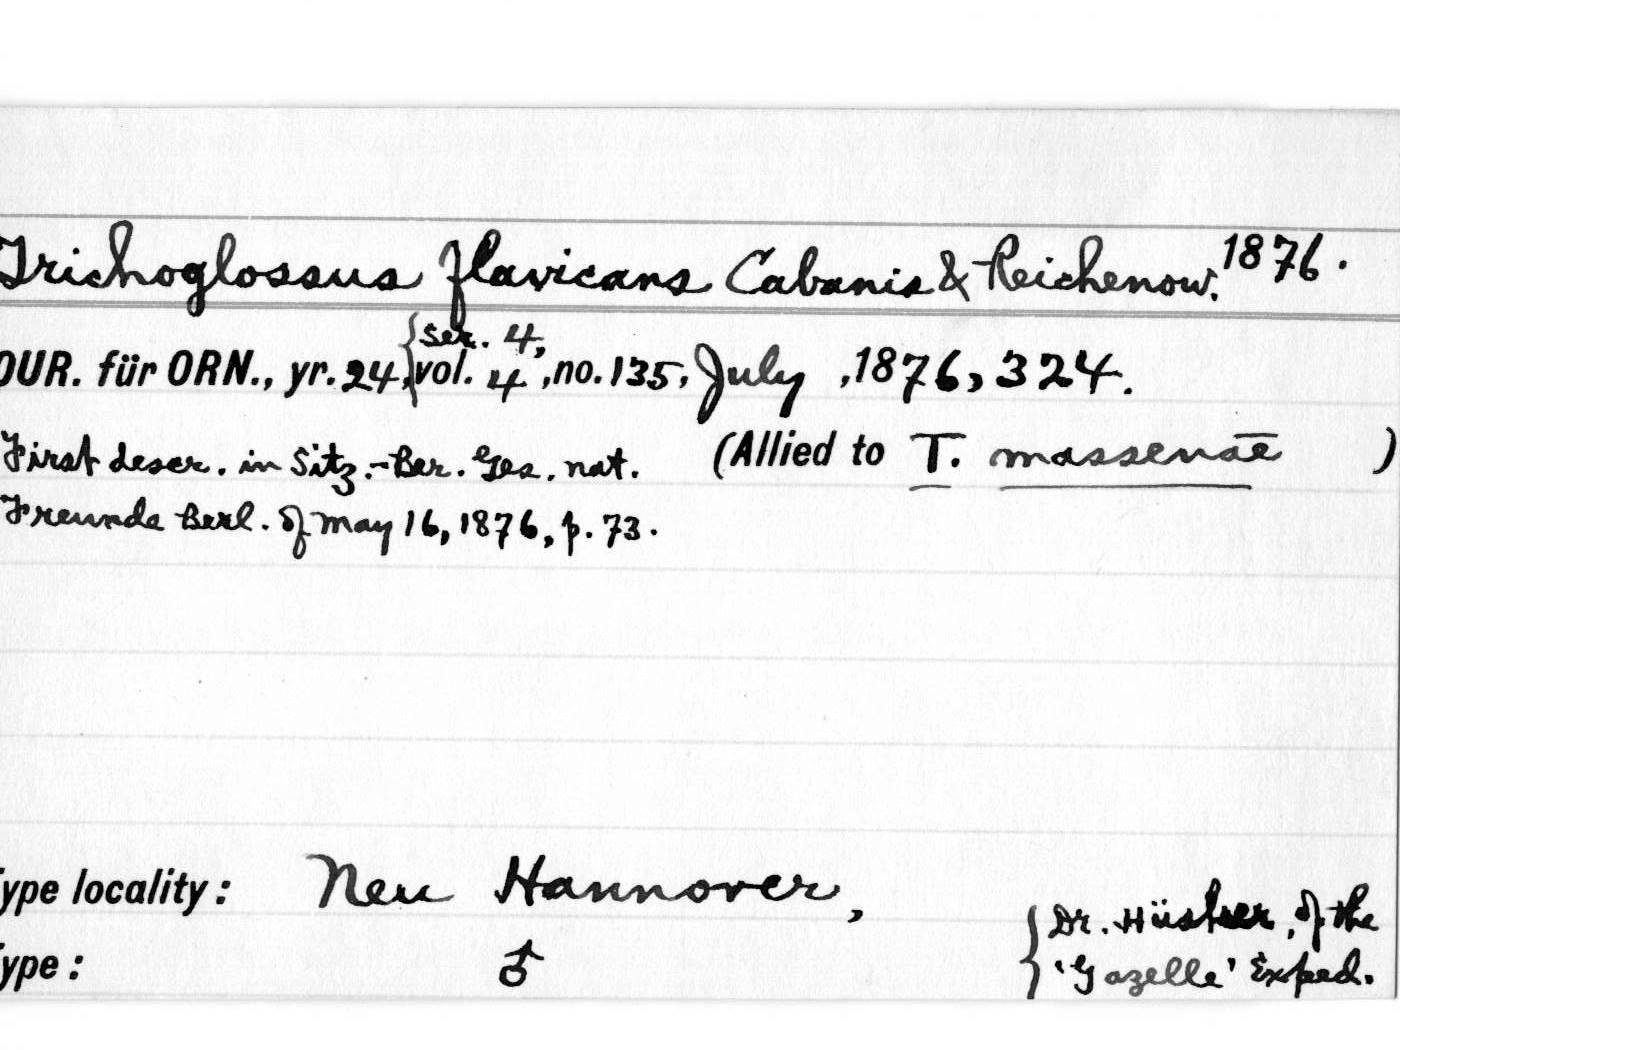 Trichoglossus flavicans Cabanis & Reichenow. 1876.
OUR. für ORN., yr. 24, { ser. 4, vol. 4, no. 135, July, 1876, 324.
First descr. in Sitz.-Ber. Ges. nat. (Allied to T. massenae)
Freunde Berl. of May 16, 1876, p. 73.
ype locality: Neu Hannover,
{ Dr. Hüsker, of the
ype: ♂ 'Gazelle' Exped.